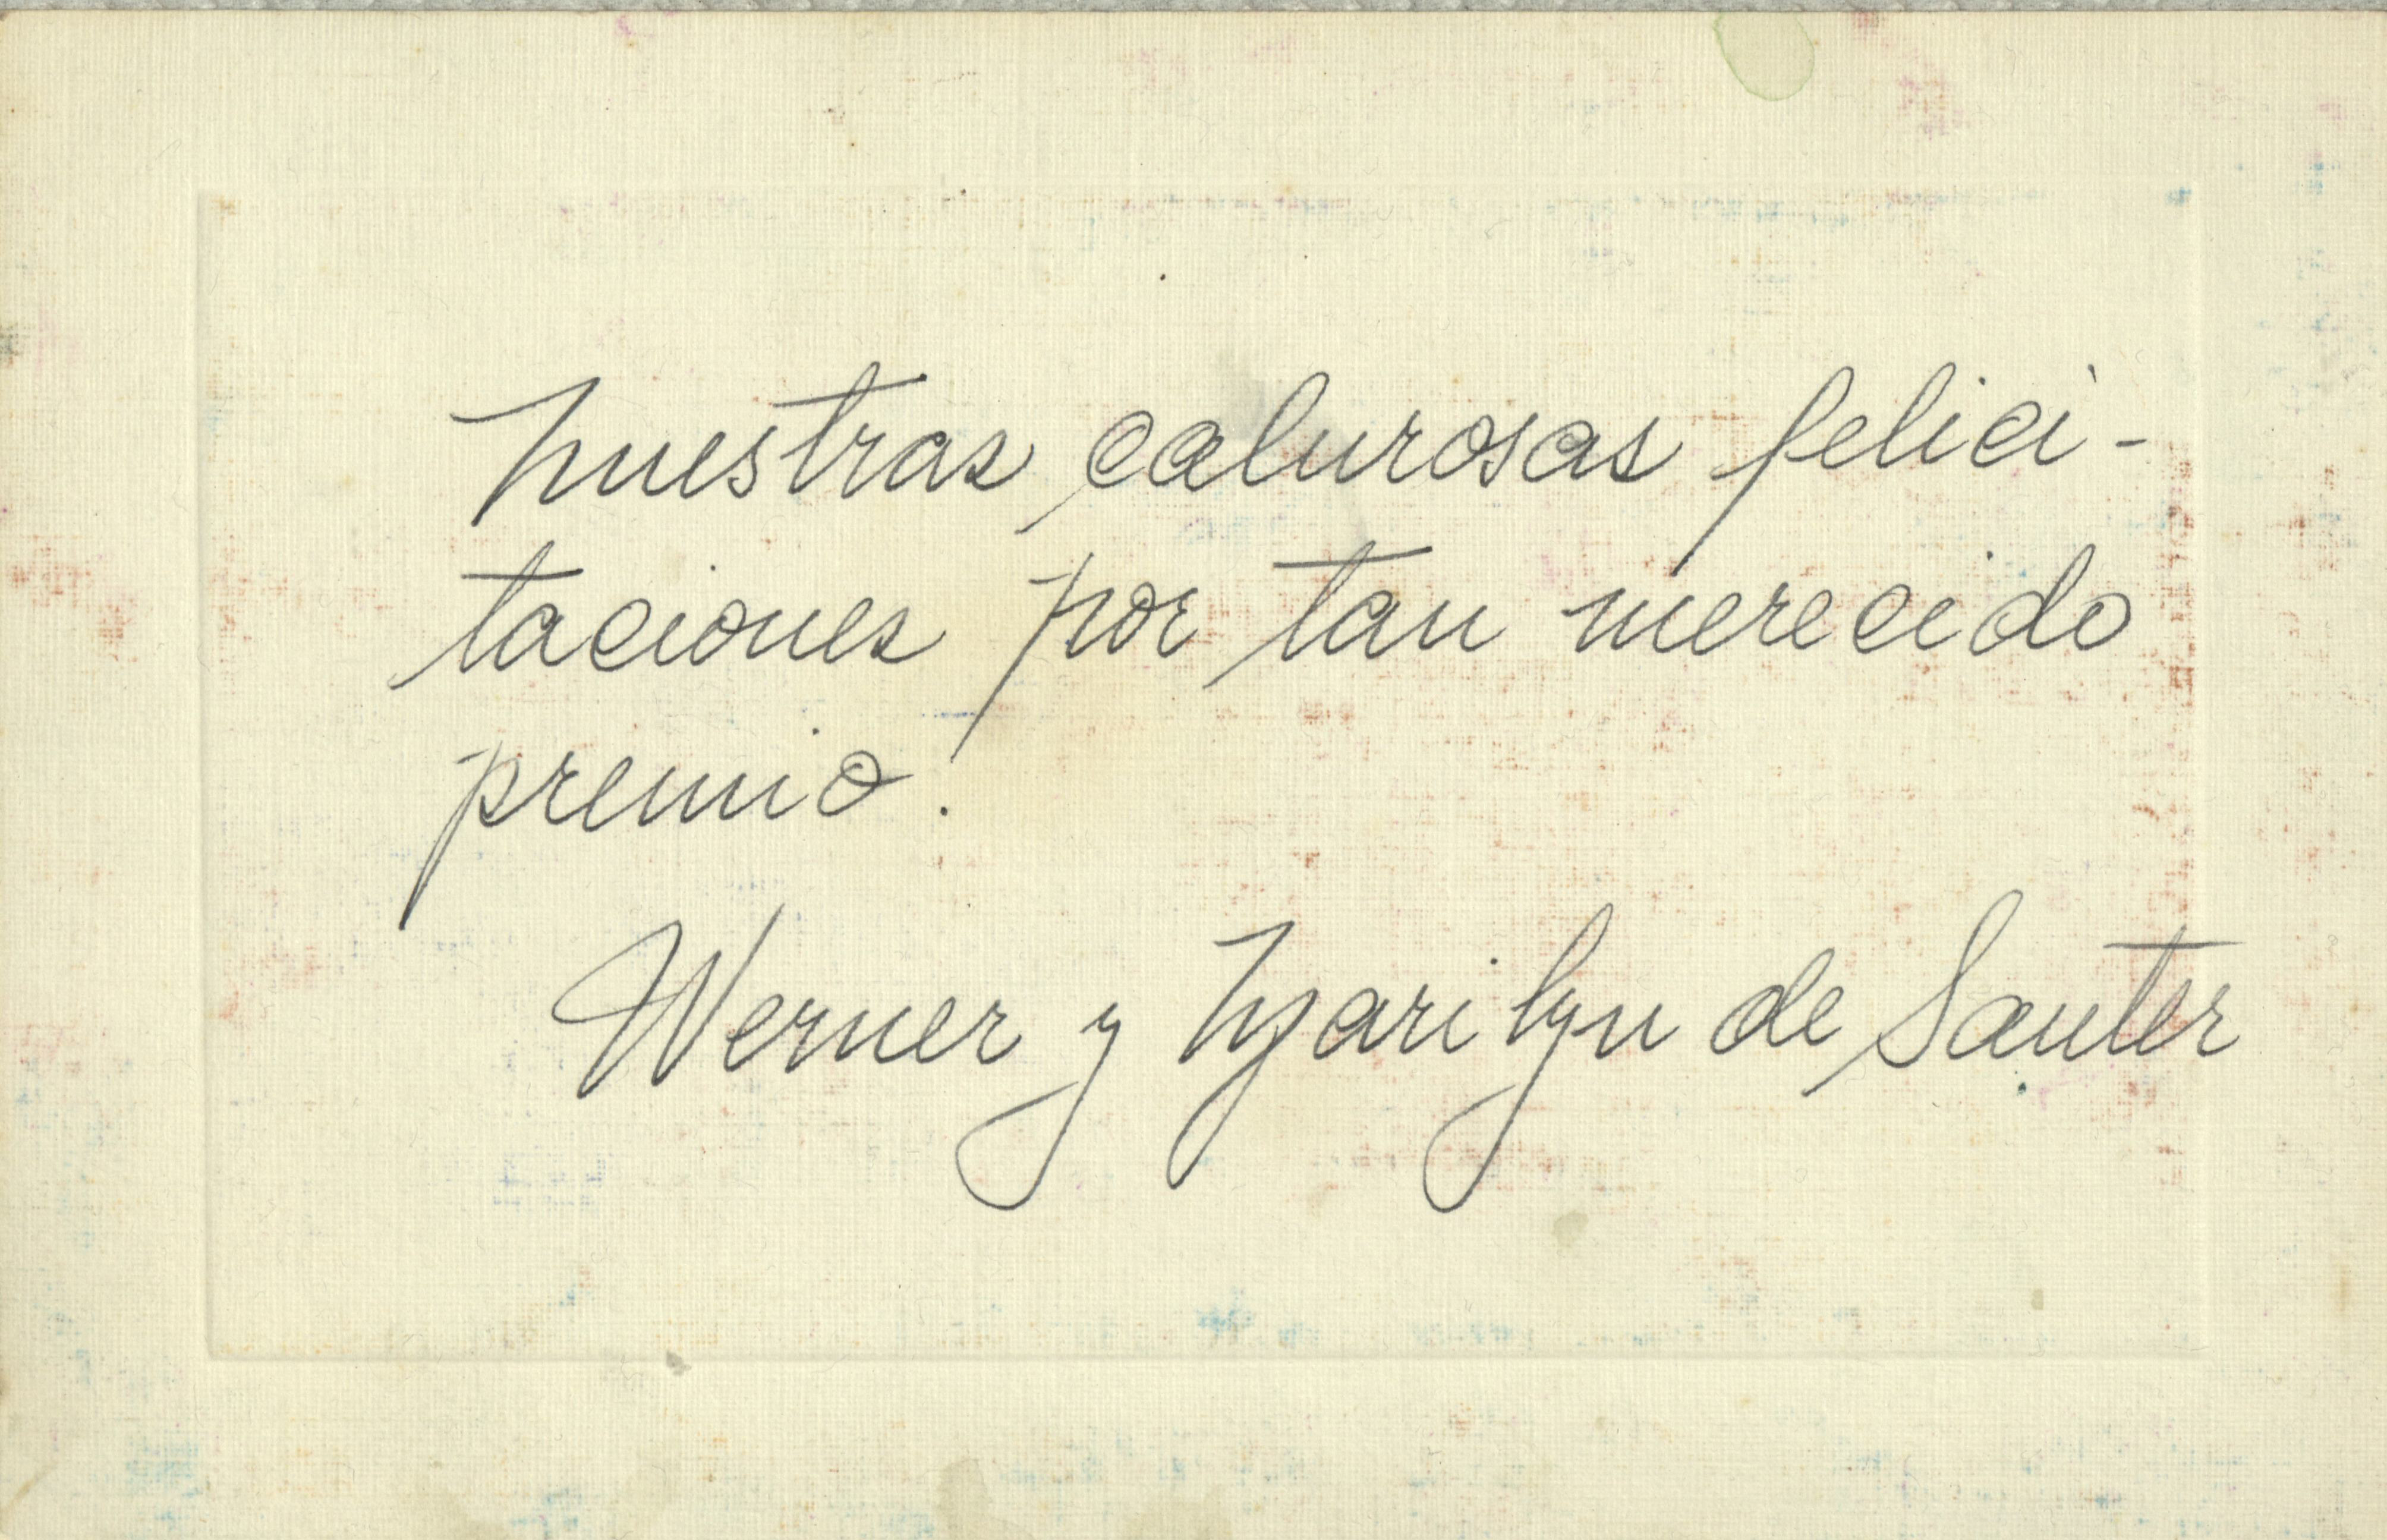 Nuestras calurosas felici-
taciones por tan merecido
premio.
Werner y Marilyn de Sauter